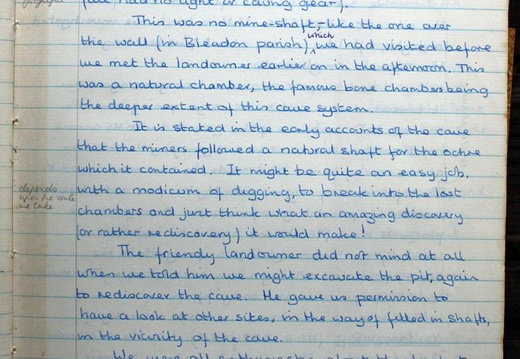 had no light or caving gear).
This was no mine-shaft, like the one over
the wall (in Bleadon parish), which we had visited before
we met the landowner earlier on in the afternoon. This
was a natural chamber, the famous bone chambers being
the deeper extent of this cave system.
It is stated in the early accounts of the cave
that the miners followed a natural shaft for the ochre
which it contained. It might be quite an easy job,
with a modicum of digging, to break into the lost
chambers and just think what an amazing discovery
(or rather rediscovery) it would make!
depends
upon the route
we take
The friendly landowner did not mind at all
when we told him we might excavate the pit, again
to rediscover the cave. He gave us permission to
have a look at other sites, in the way of filled in shafts,
in the vicinity of the cave.
We were all